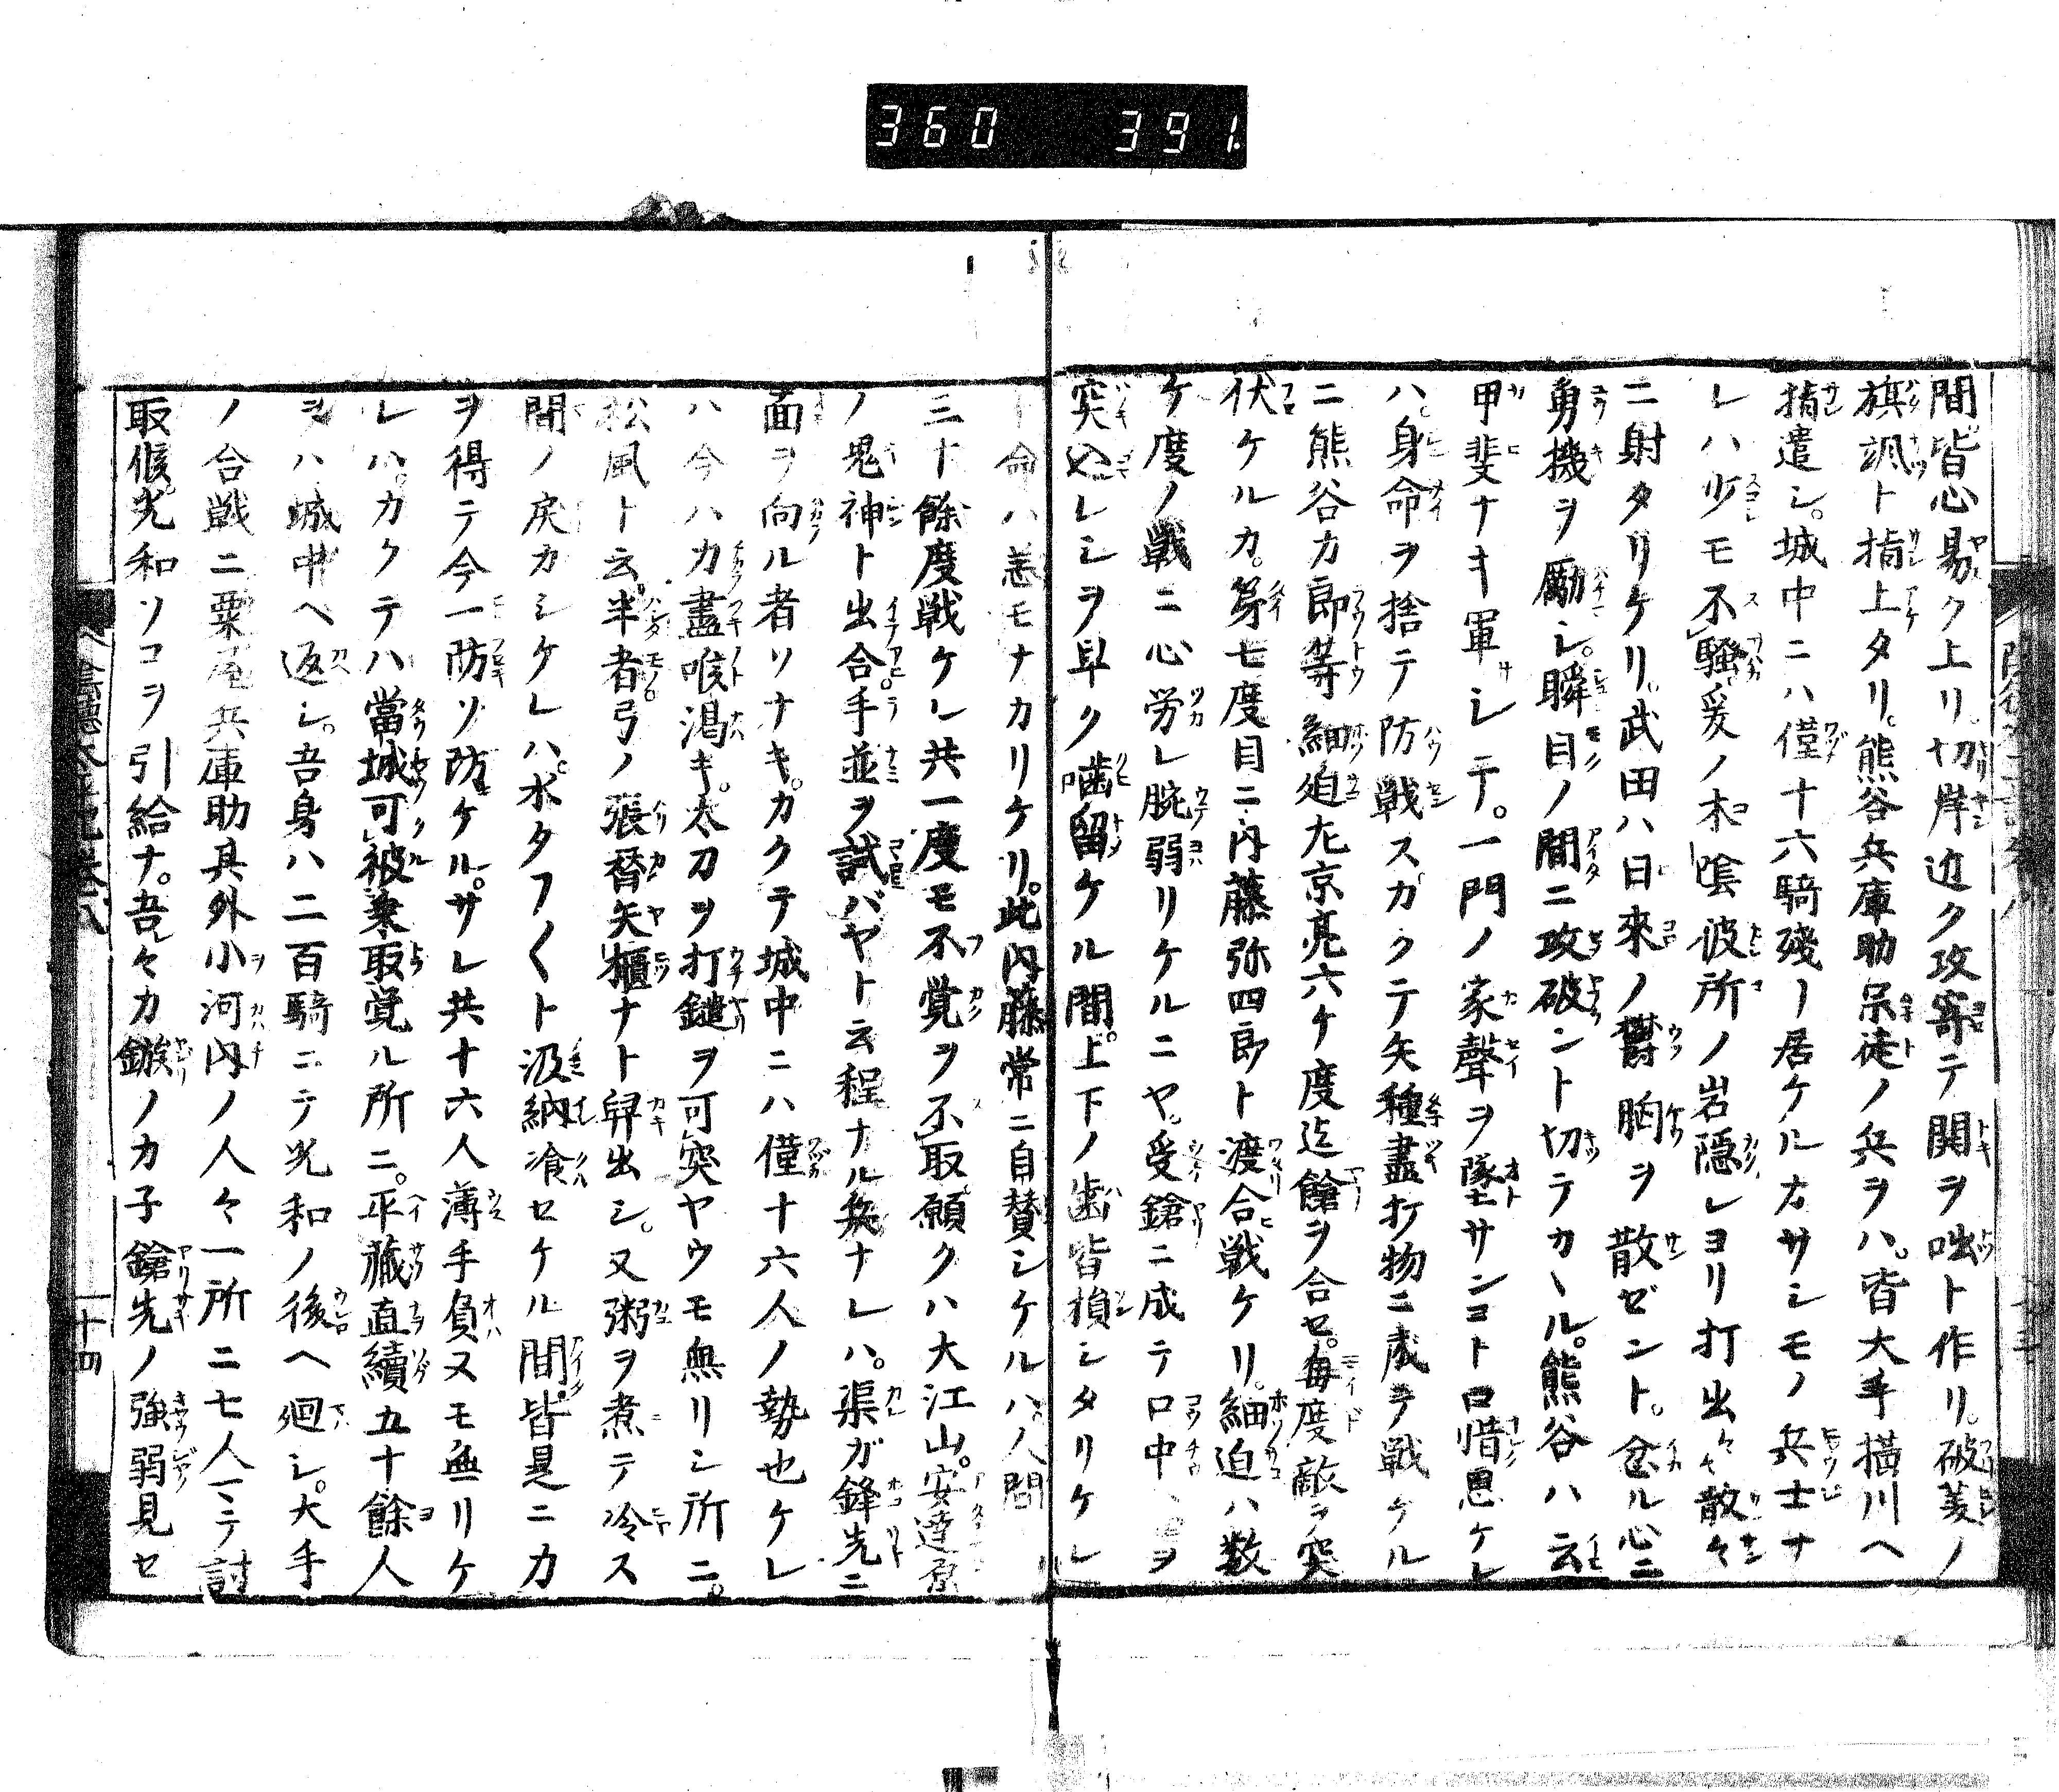 360 391
間皆心易ク上リ。切岸近ク攻寄テ鬨ヲ咄ト作リ。破菱ノ
旗颯ト指上タリ。熊谷兵庫助呆徒ノ兵ヲハ。皆大手横川ヘ
指遣シ。城中ニハ僅十六騎残リ居ケルカサシモノ兵士ナ
レハ少モ不騒爰ノ木陰彼所ノ岩隠レヨリ打出々々散々
ニ射タリケリ。武田ハ日来ノ欝胸ヲ散ゼント。忿ル心ニ
勇機ヲ励シ。瞬目ノ間ニ攻破ント切テカヽル。熊谷ハ云
甲斐ナキ軍シテ。一門ノ家聲ヲ墜サンヨト口惜思ケレ
ハ。身命ヲ捨テ防戦スカクテ矢種盡打物ニ成テ戦ケル
ニ熊谷カ郎等細迫左京亮六ケ度迄鎗ヲ合セ。毎度敵ヲ突
伏ケルカ。第七度目ニ内藤弥四郎ト渡合戦ケリ。細迫ハ数
ケ度ノ戦ニ心労レ腕弱リケルニヤ。受鎗ニ成テ口中ヲ
突込レシヲ早ク噛留ケル間。上下ノ歯皆損シタリケレ
ト命ハ恙モナカリケリ。此内藤常ニ自賛シケルハ人間
三十餘度戦ケレ共一度モ不覚ヲ不取願クハ大江山。安達原
ノ鬼神ト出合手並ヲ試バヤト云程ナル兵ナレハ。渠ガ鋒先ニ
面ヲ向ル者ソナキ。カクテ城中ニハ僅十六人ノ勢也ケレ
ハ今ハ力盡喉渇キ。太刀ヲ打鑓ヲ可突ヤウモ無リシ所ニ。
松風ト云。半者弓ノ張替矢櫃ナト舁出シ。又粥ヲ煮テ冷ス
間ノ戻カシケレハ。水タフ〳〵ト汲納飡セケル間。皆是ニカ
ヲ得テ今一防ソ防ケル。サレ共十六人薄手負ヌモ無リケ
レハ。カクテハ當城可被乗取覚ル所ニ。平蔵直續五十餘人
ヲハ城中ヘ返シ。吾身ハ二百騎ニテ光和ノ後ヘ廻シ。大手
ノ合戦ニ粟屋兵庫助具外小河内ノ人々一所ニ七人ニテ討
取候。光和ソコヲ引給ナ。吾々カ鏃ノカ子鎗先ノ強弱見セ
十四